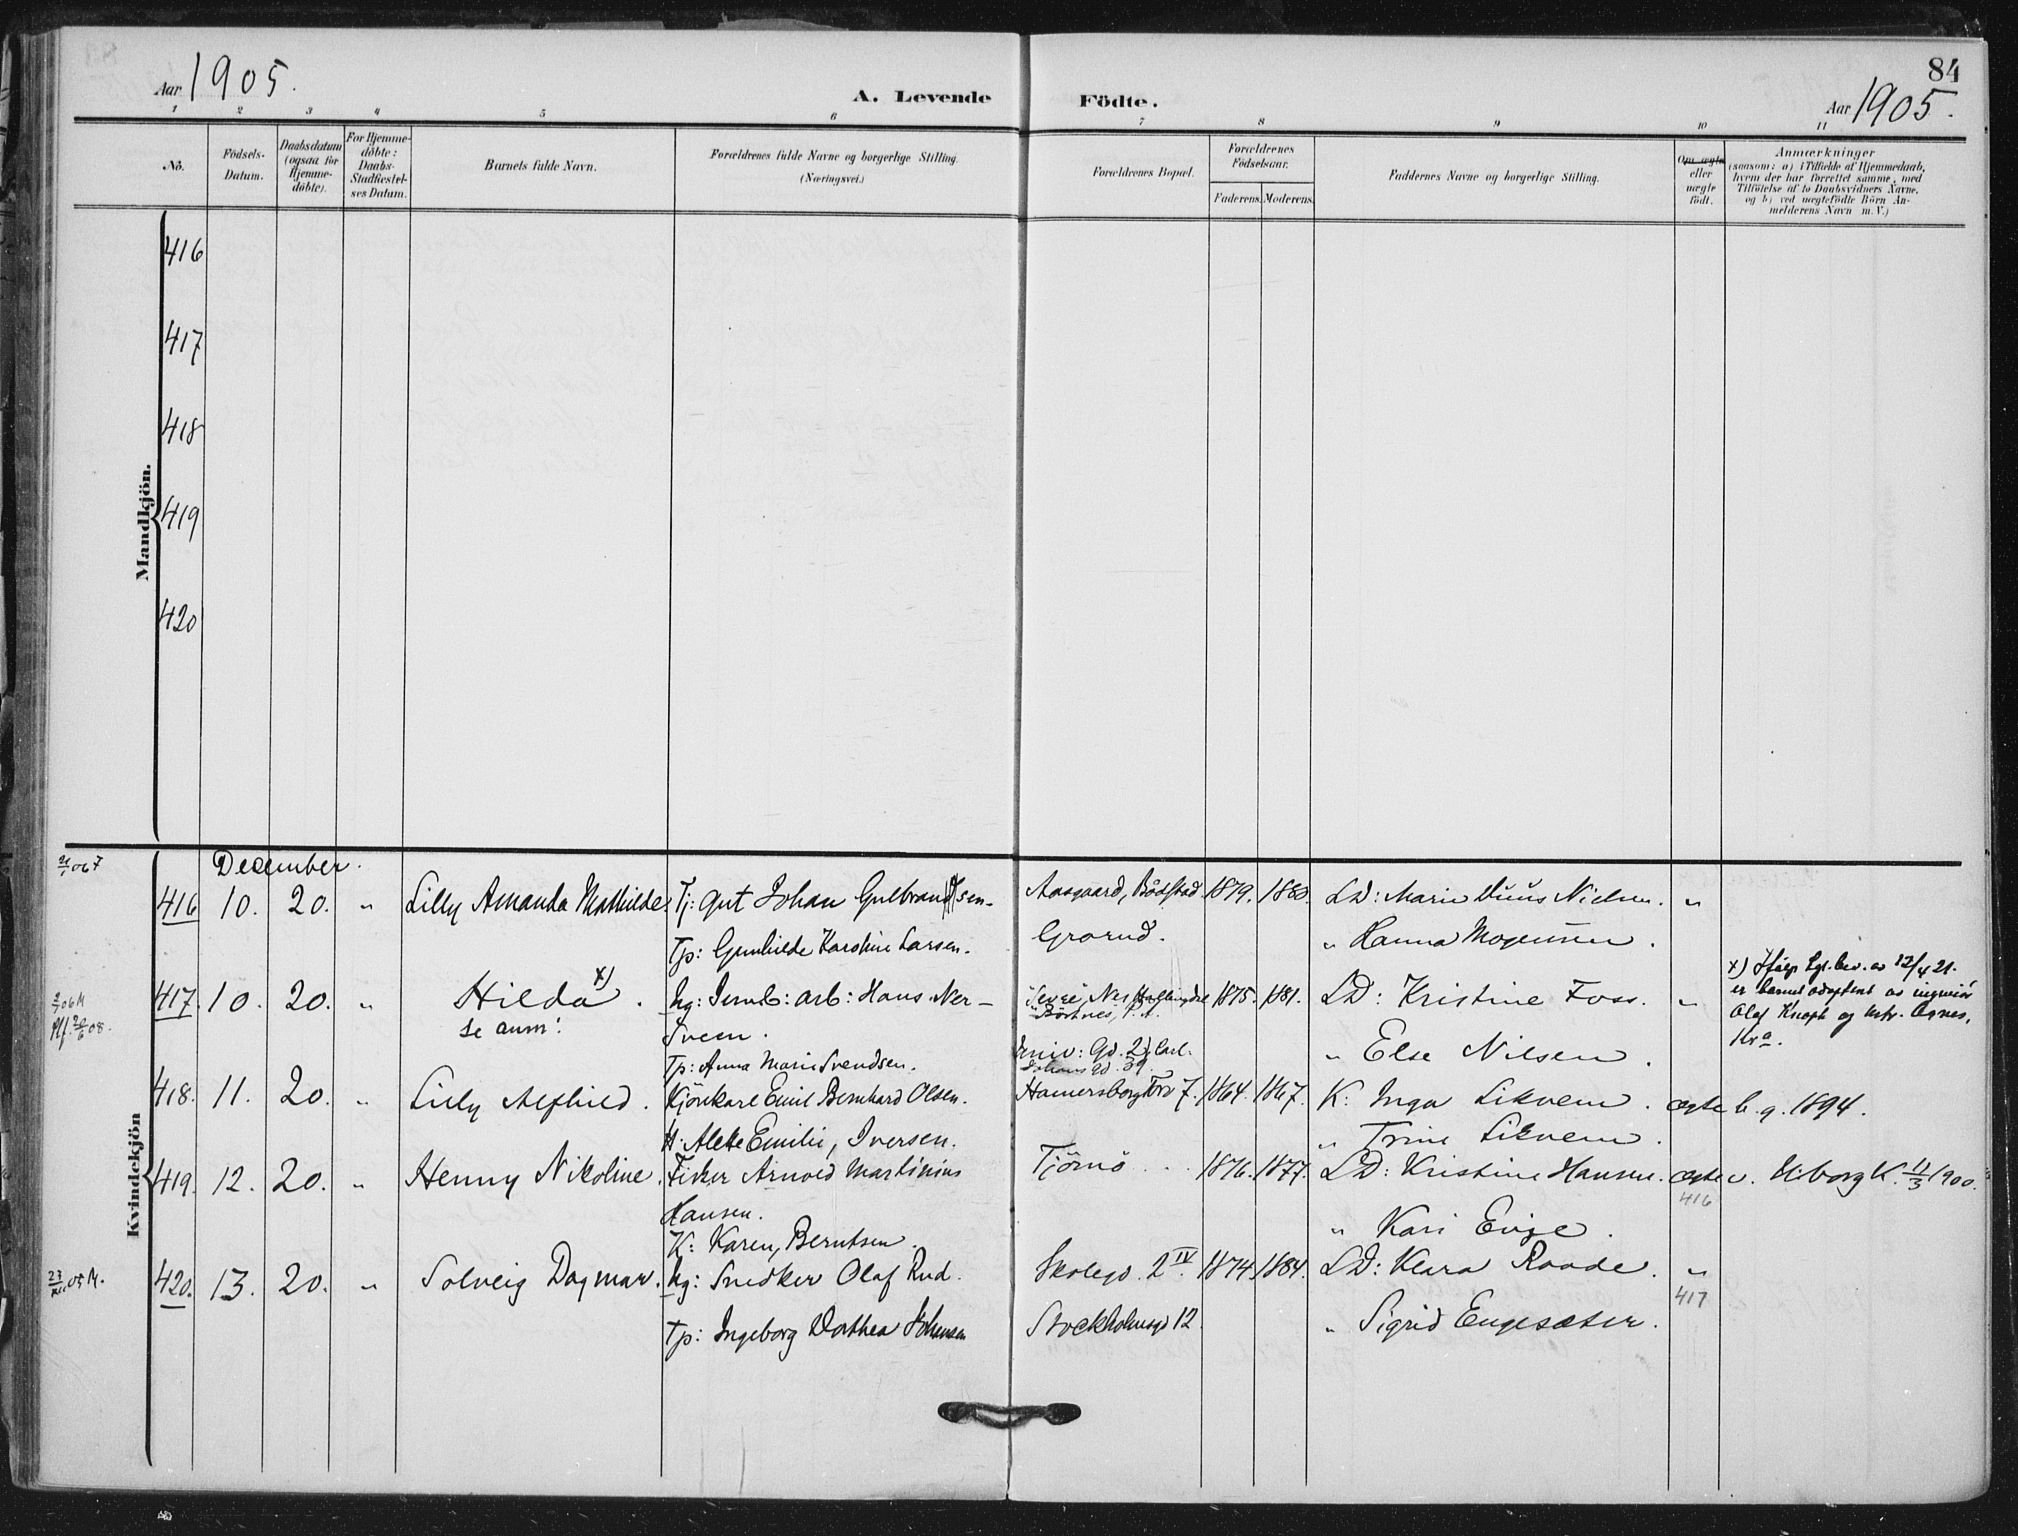 84
Aar 1905.
A. Levende Födte.
Aar 1905.
1 2 3 4 5 6 7 8 9 10 11
No.
Födsels-Datum.
Daabsdatum (ogsaa for Hjemme-döbte).
For Hjemme-döbte: Daabs-Stadfæstel-ses Datum.
Barnets fulde Navn.
Forældrenes fulde Navne og borgerlige Stilling.
(Næringsvei.)
Forældrenes Bopæl.
Forældrenes Födselsaar.
Faderens. Moderens.
Faddernes Navne og borgerlige Stilling.
Om ægte eller uægte födt.
Anmærkninger
(saasom: a) i Tilfælde af Hjemmedaab,
hvem der har forrettet samme, med
Tilföielse af to Daabsvidners Navne,
og b) ved uægtefödte Börn An-
melderens Navn m. V.)
Mandkjön.
416
417
418
419
420
Kvindekjön
December.
416 10. 20. " Lilly Amanda Mathilde. Tj: gut Johan Gulbrandsen- Aasgaard, Bödstad 1879. 1883. LD: Marie Duus Nielsen. "
Tp: Gunhilde Karoline Larsen. Grorud. " Hanna Mogensen.
417. 10. 20. " Hilda x). Ug: Jernb: arb: Hans Ner- 1875. 1881. LD: Kristine Foss. "
se anm: Svem.
Tp: Anna Marie Svendsen. Univ: Gd. 21 Carl Johans Gd. 39. " Else Nilsen.
x) Ifölge Kgl. bev. av 12/4 21.
er barnet adoptert av ingeniör
Olaf Knoph og hstr. Agnes,
Kra.
418. 11. 20. " Lilly Alfhild. Kjörekarl Emil Bernhard Olsen. Hamersborg Torv 7. 1864. 1867. K: Inga Likvem. ægte b. g. 1894.
H: Alette Emilie, Iversen. " Trine Likvem.
419. 12. 20. " Henny Nikoline. Fisker Arnold Martinius Tjömö 1876. 1877. LD: Kristine Hansen. ægte v. Uiborg K. 11/3 1900.
416
Hansen.
K: Karen, Berntsen. " Kari Evje.
420. 13. 20. " Solveig Dagmar. Ug: Snedker Olaf Rud. Skolegd. 2 IV. 1874. 1884. LD: Klara Raade. "
417
Tp: Ingeborg Dorthea Johansen Stockholmsgd 12. " Sigrid Engesæter.